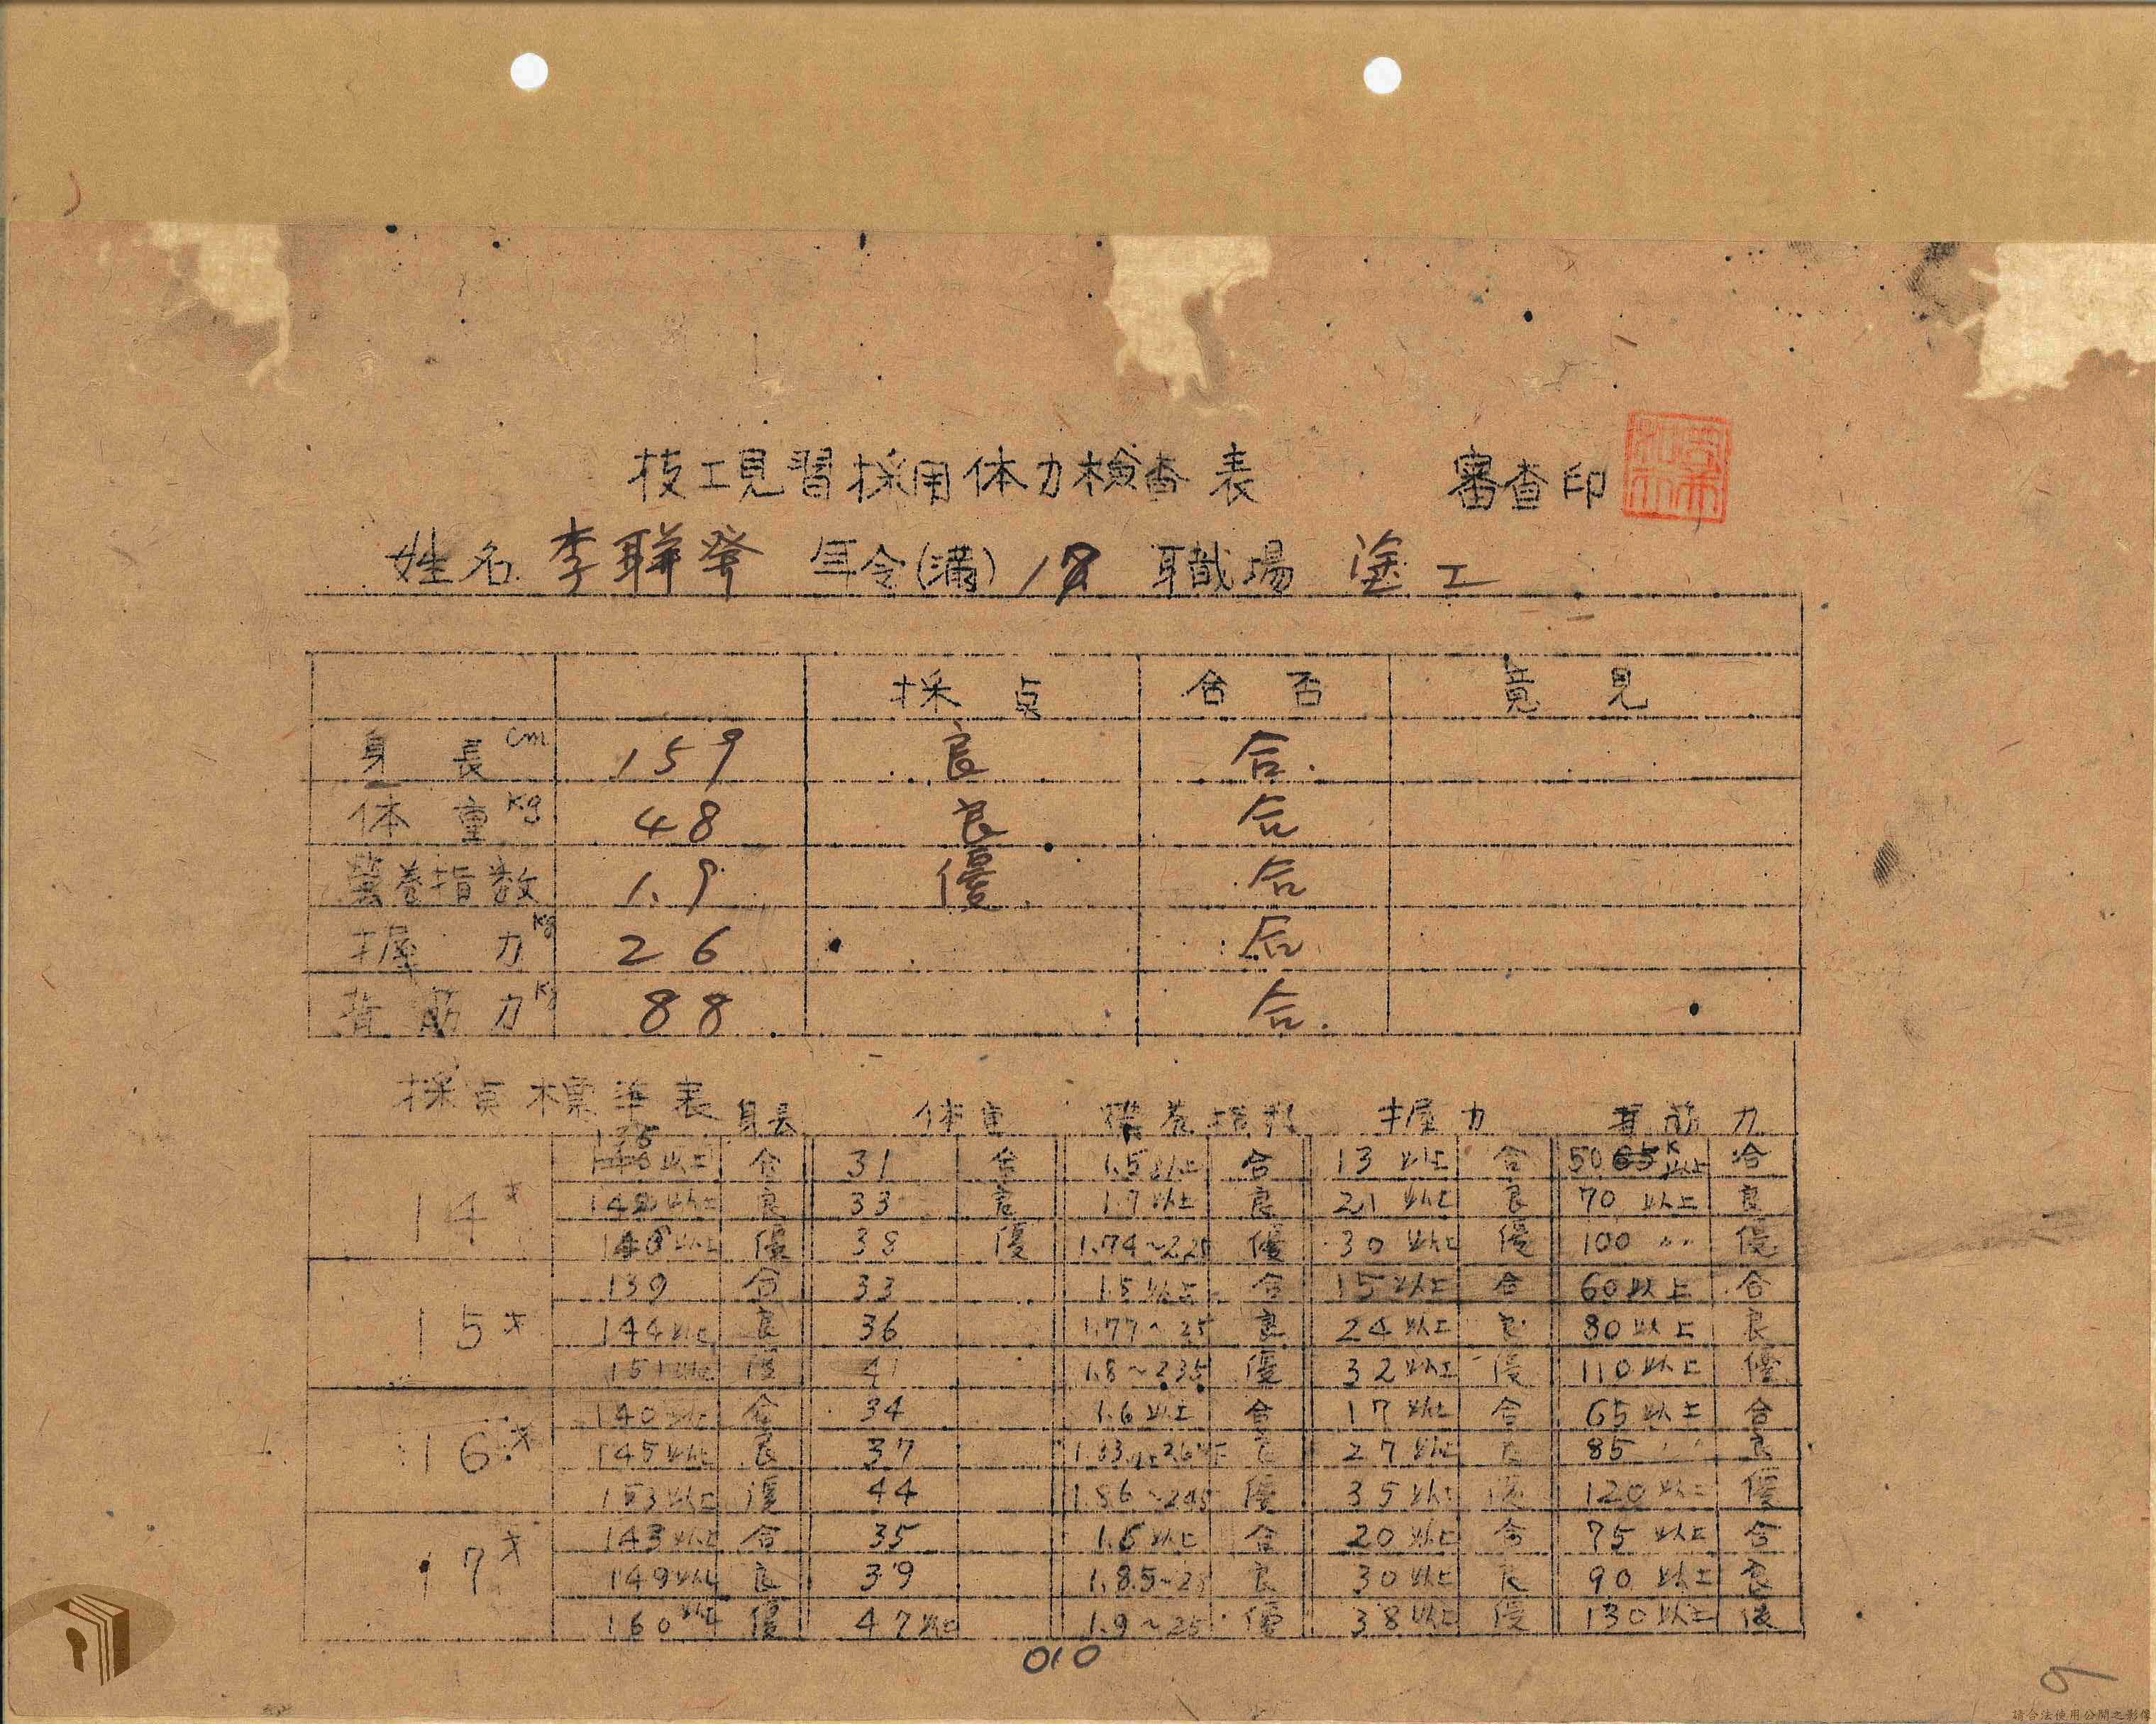 技工見習採用体力検査表 審査印
姓名 李聯登 年令(満) 17 職場 塗工
採点 合否 意見
身長 cm 159 良 合.
体重 Kg 48 良 合
営養指数 1.9 優 合
握力 Kg 26 合
背筋力 Kg 88 合.
採点標準表 身長 体重 営養指数 握力 背筋力
14才 以上 合 31 合 1.5以上 合 13以上 合 50 以上 合
以上 良 33 良 1.7以上 良 21以上 良 70以上 良
以上 優 38 優 1.74~2.25 優 30以上 優 100〃 優
15才 139 合 33 1.5以上 合 15以上 合 60以上 合
144以上 良 36 1.77~25 良 24以上 良 80以上 良
151以上 優 41 1.8~2.35 優 32以上 優 110以上 優
16才 140以上 合 34 1.6以上 合 17以上 合 65以上 合
145以上 良 37 良 27以上 良 85〃 良
153以上 優 44 1.86~2.45 優 35以上 優 120以上 優
17才 143以上 合 35 1.6以上 合 20以上 合 75以上 合
149以上 良 39 1.85~25 良 30以上 良 90以上 良
160以上 優 47以上 1.9~25 優 38以上 優 130以上 優
010
9
請合法使用公開之影像